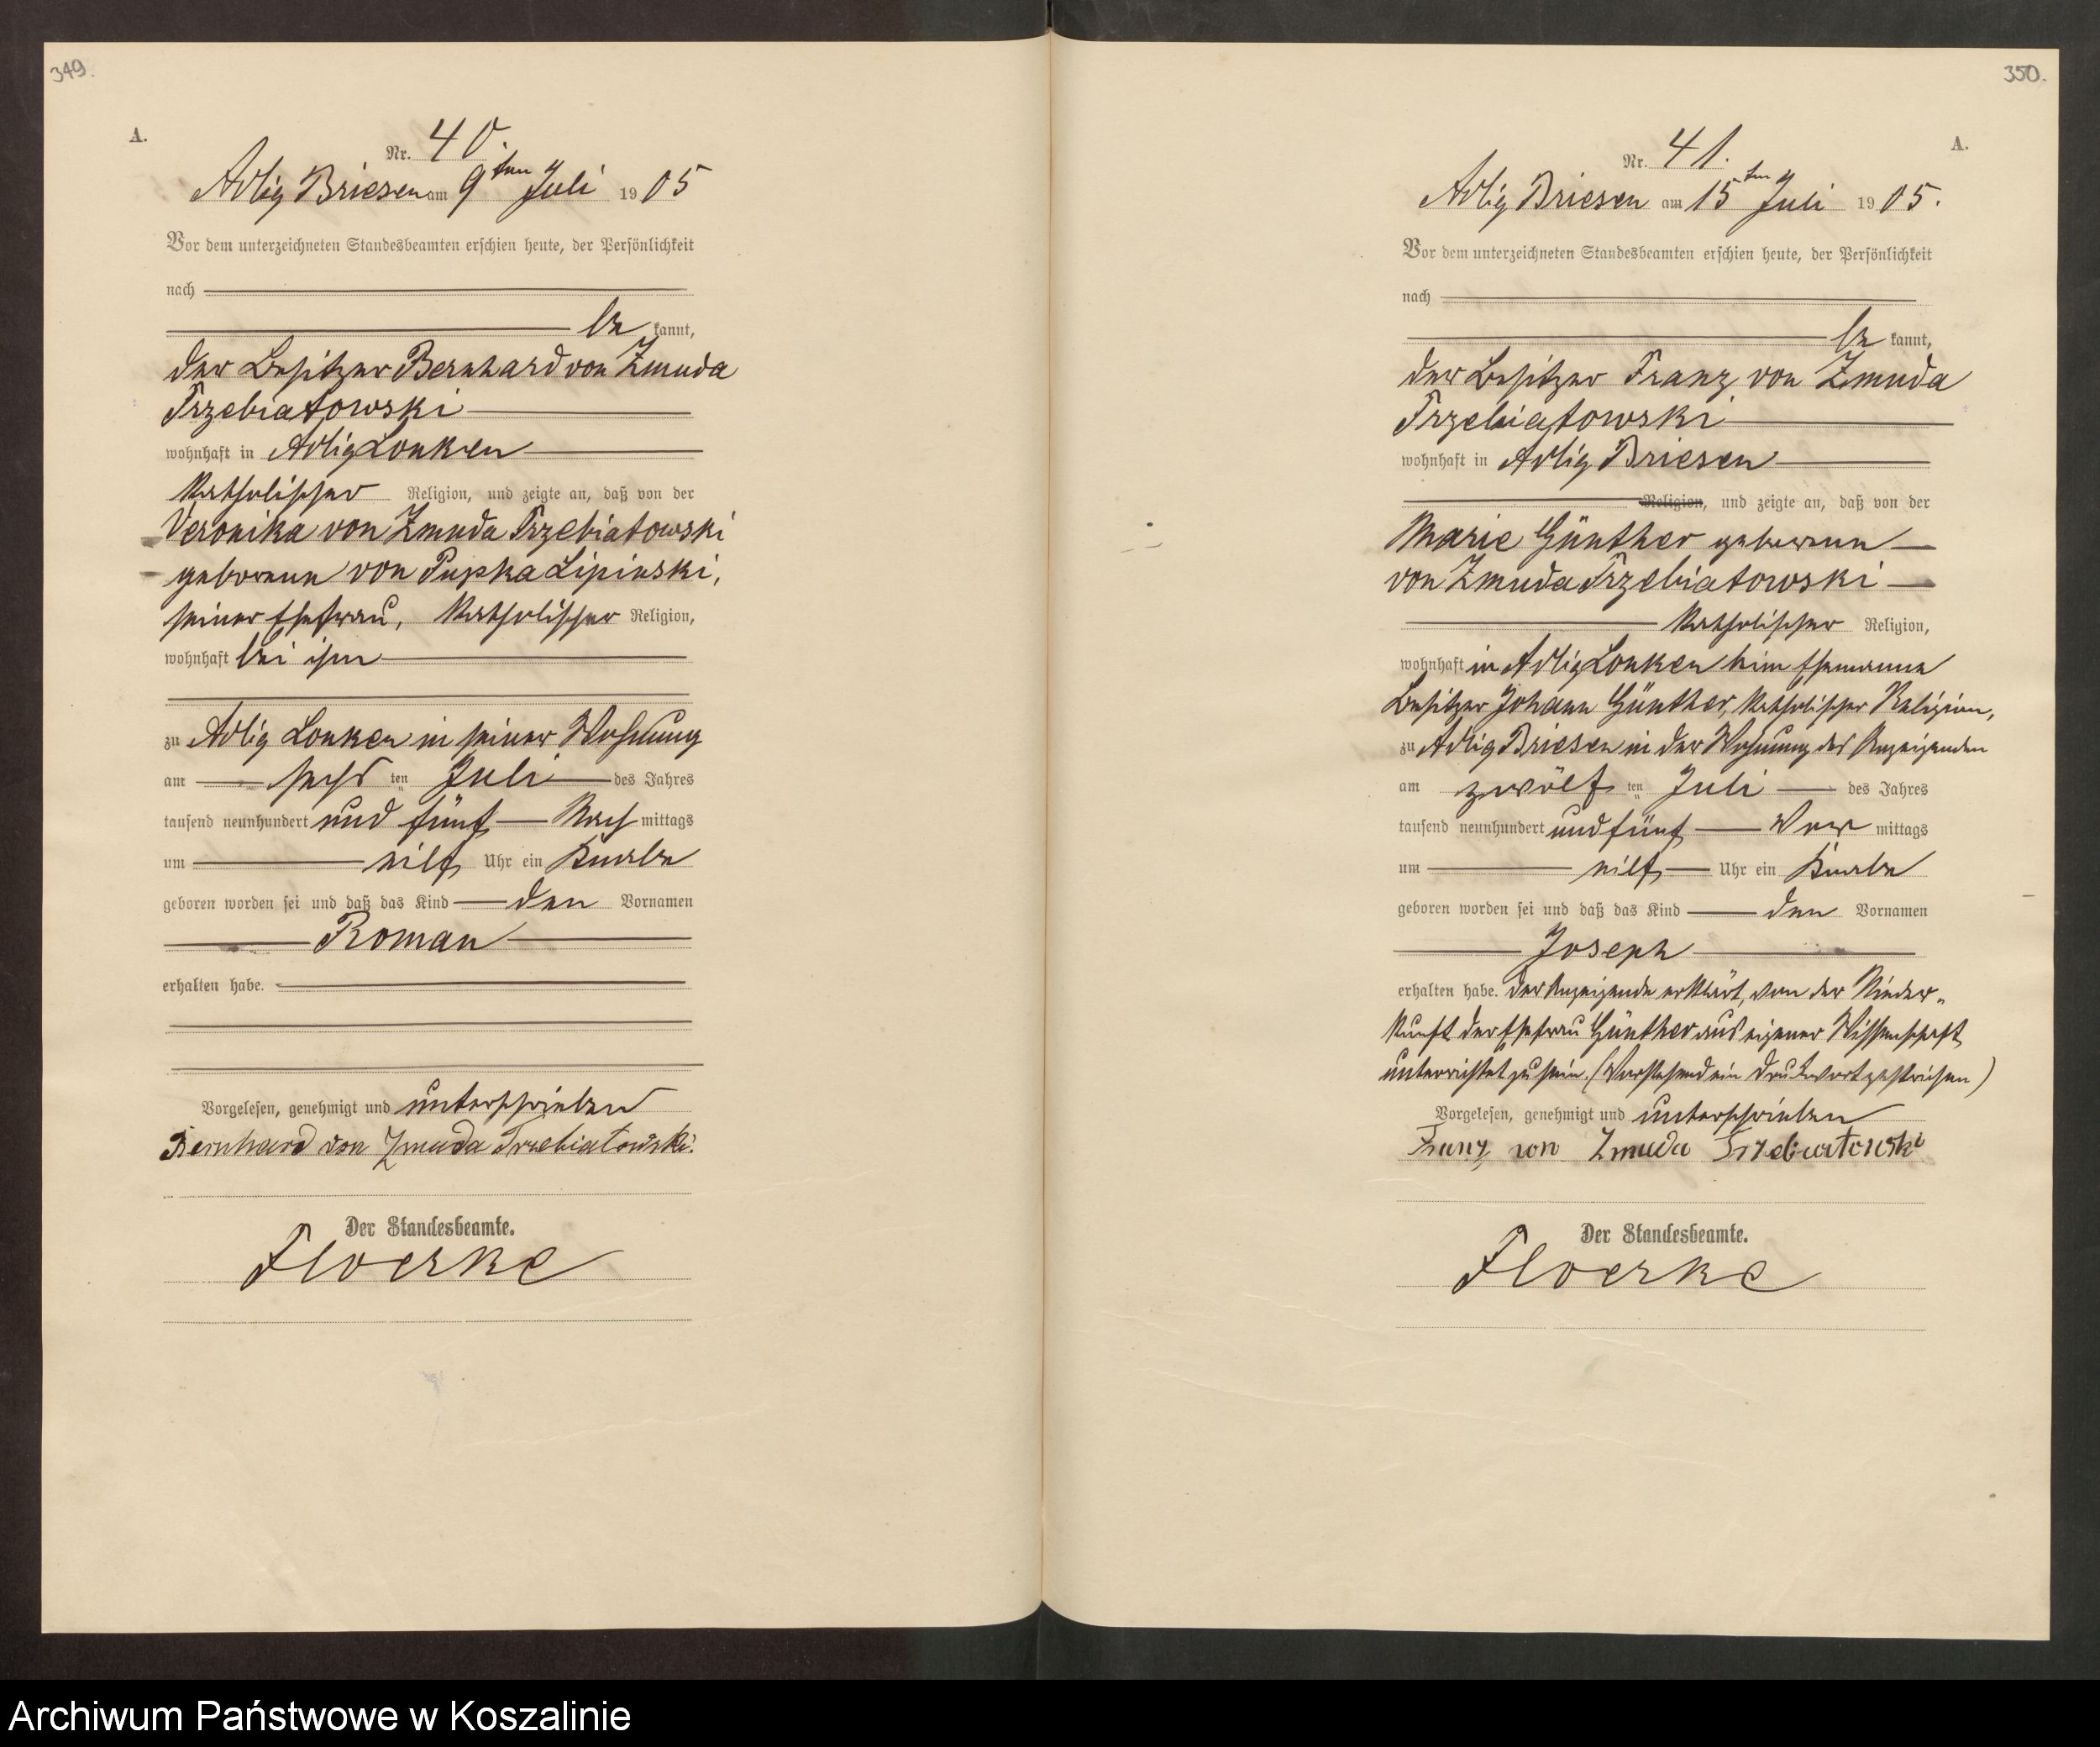 349.
A.
Nr. 40.
Adlig Briesen am 9ten Juli 1905
Vor dem unterzeichneten Standesbeamten erschien heute, der Persönlichkeit
nach
be kannt,
der Besitzer Bernhard von Zmuda
Trzebiatowski
wohnhaft in Adlig Lonken
katholischer Religion, und zeigte an, daß von der
Veronika von Zmuda Trzebiatowski
geborenen von Pupka Lipinski,
seiner Ehefrau, katholischer Religion,
wohnhaft bei ihm
zu Adlig Lonken in seiner Wohnung
am sechs ten Juli des Jahres
tausend neunhundert und fünf Nach mittags
um elf Uhr ein Knabe
geboren worden sei und daß das Kind den Vornamen
Roman
erhalten habe.
Vorgelesen, genehmigt und unterschrieben
Bernhard von Zmuda Trzebiatowski.
Der Standesbeamte.
Floerke
350.
A.
Nr. 41.
Adlig Briesen am 15ten Juli 1905.
Vor dem unterzeichneten Standesbeamten erschien heute, der Persönlichkeit
nach
be kannt,
der Besitzer Franz von Zmuda
Trzebiatowski
wohnhaft in Adlig Briesen
Religion, und zeigte an, daß von der
Marie Günther geborenen
von Zmuda Trzebiatowski
katholischer Religion,
wohnhaft in Adlig Lonken beim Ehemanne
Besitzer Johann Günther, katholischer Religion,
zu Adlig Briesen in der Wohnung des Anzeigenden
am zwölf ten Juli des Jahres
tausend neunhundert und fünf Vor mittags
um elf Uhr ein Knabe
geboren worden sei und daß das Kind den Vornamen
Joseph
erhalten habe. Der Anzeigende erklärt, von der Nieder-
kunft der Ehefrau Günther aus eigener Wissenschaft
unterrichtet zu sein. (Vorstehend ein Druckwort gestrichen)
Vorgelesen, genehmigt und unterschrieben
Franz von Zmuda Trzebiatowski
Der Standesbeamte.
Floerke
Archiwum Państwowe w Koszalinie